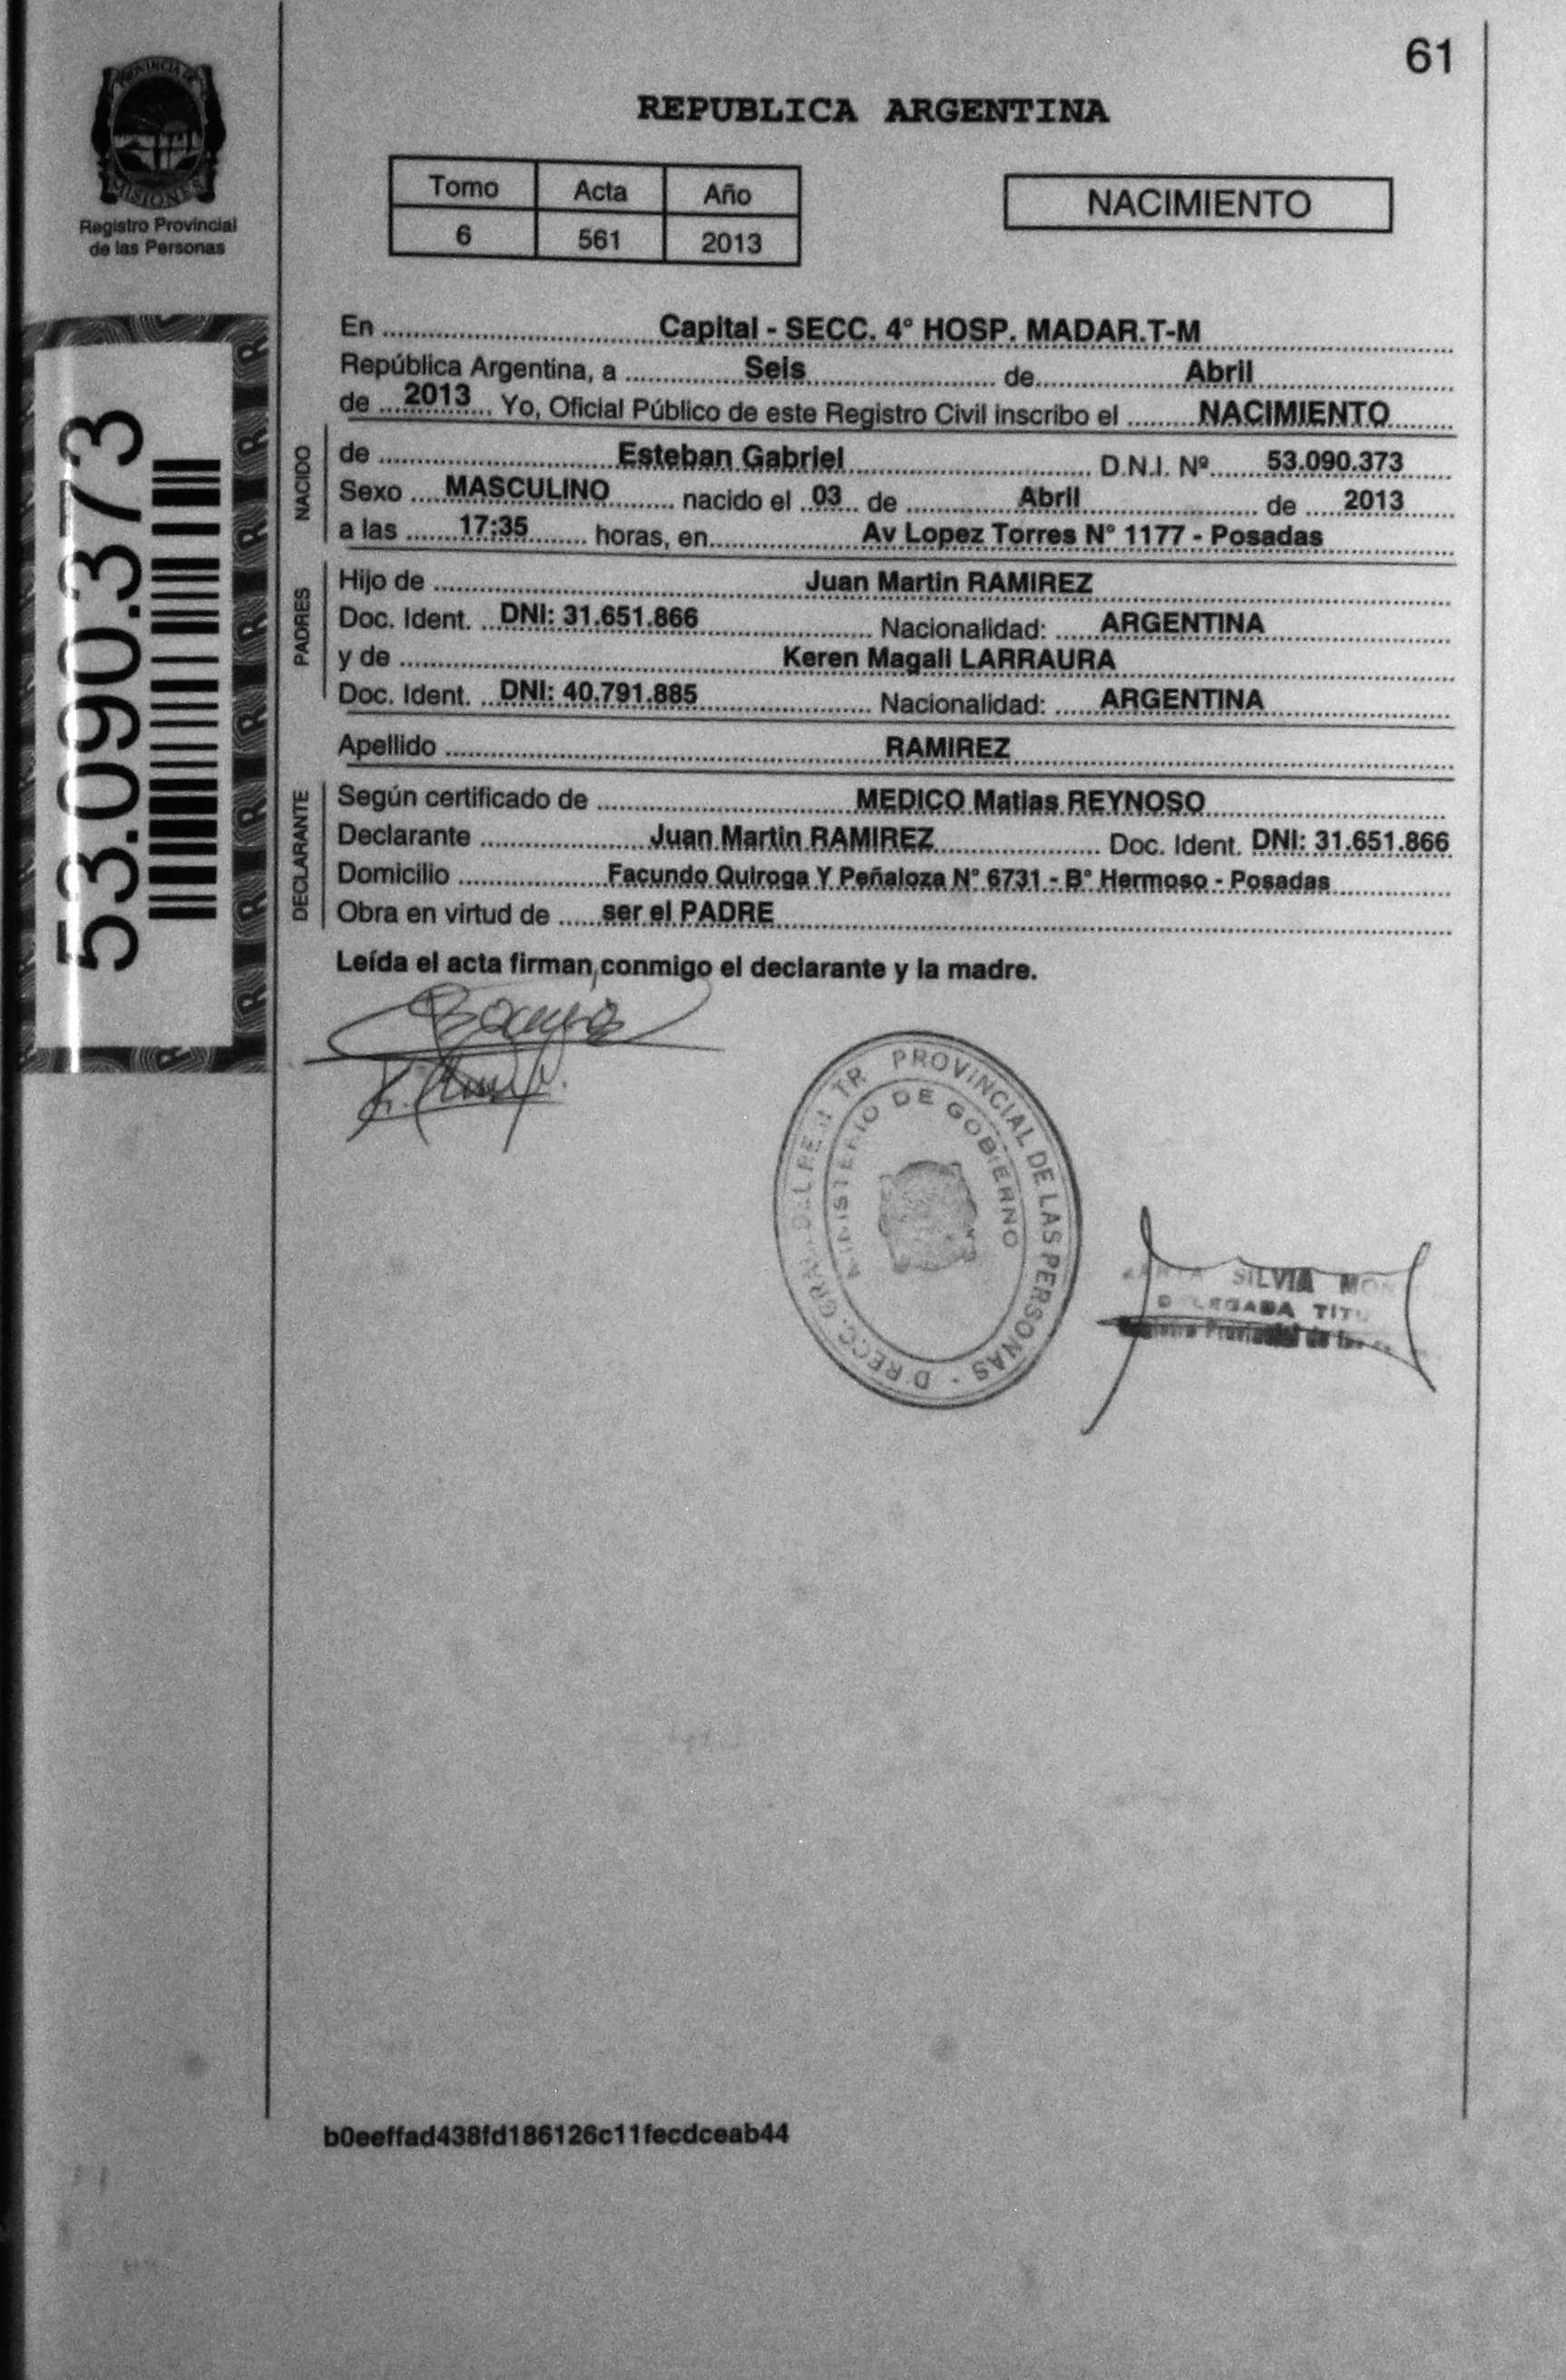 61
PROVINCIA DE
MISIONES
Registro Provincial
de las Personas
REPUBLICA ARGENTINA
Tomo Acta Año
6 561 2013
NACIMIENTO
53.090.373
En Capital - SECC. 4° HOSP. MADAR.T-M
República Argentina, a Seis de Abril
de 2013 Yo, Oficial Público de este Registro Civil inscribo el NACIMIENTO
NACIDO
de Esteban Gabriel D.N.I. Nº 53.090.373
Sexo MASCULINO nacido el 03 de Abril de 2013
a las 17:35 horas, en Av Lopez Torres N° 1177 - Posadas
PADRES
Hijo de Juan Martin RAMIREZ
Doc. Ident. DNI: 31.651.866 Nacionalidad: ARGENTINA
y de Keren Magali LARRAURA
Doc. Ident. DNI: 40.791.885 Nacionalidad: ARGENTINA
Apellido RAMIREZ
DECLARANTE
Según certificado de MEDICO Matias REYNOSO
Declarante Juan Martin RAMIREZ Doc. Ident. DNI: 31.651.866
Domicilio Facundo Quiroga Y Peñaloza N° 6731 - B° Hermoso - Posadas
Obra en virtud de ser el PADRE
Leída el acta firman conmigo el declarante y la madre.
PROVINCIAL DE LAS PERSONAS
MINISTERIO DE GOBIERNO
SILVIA
b0eeffad438fd186126c11fecdceab44